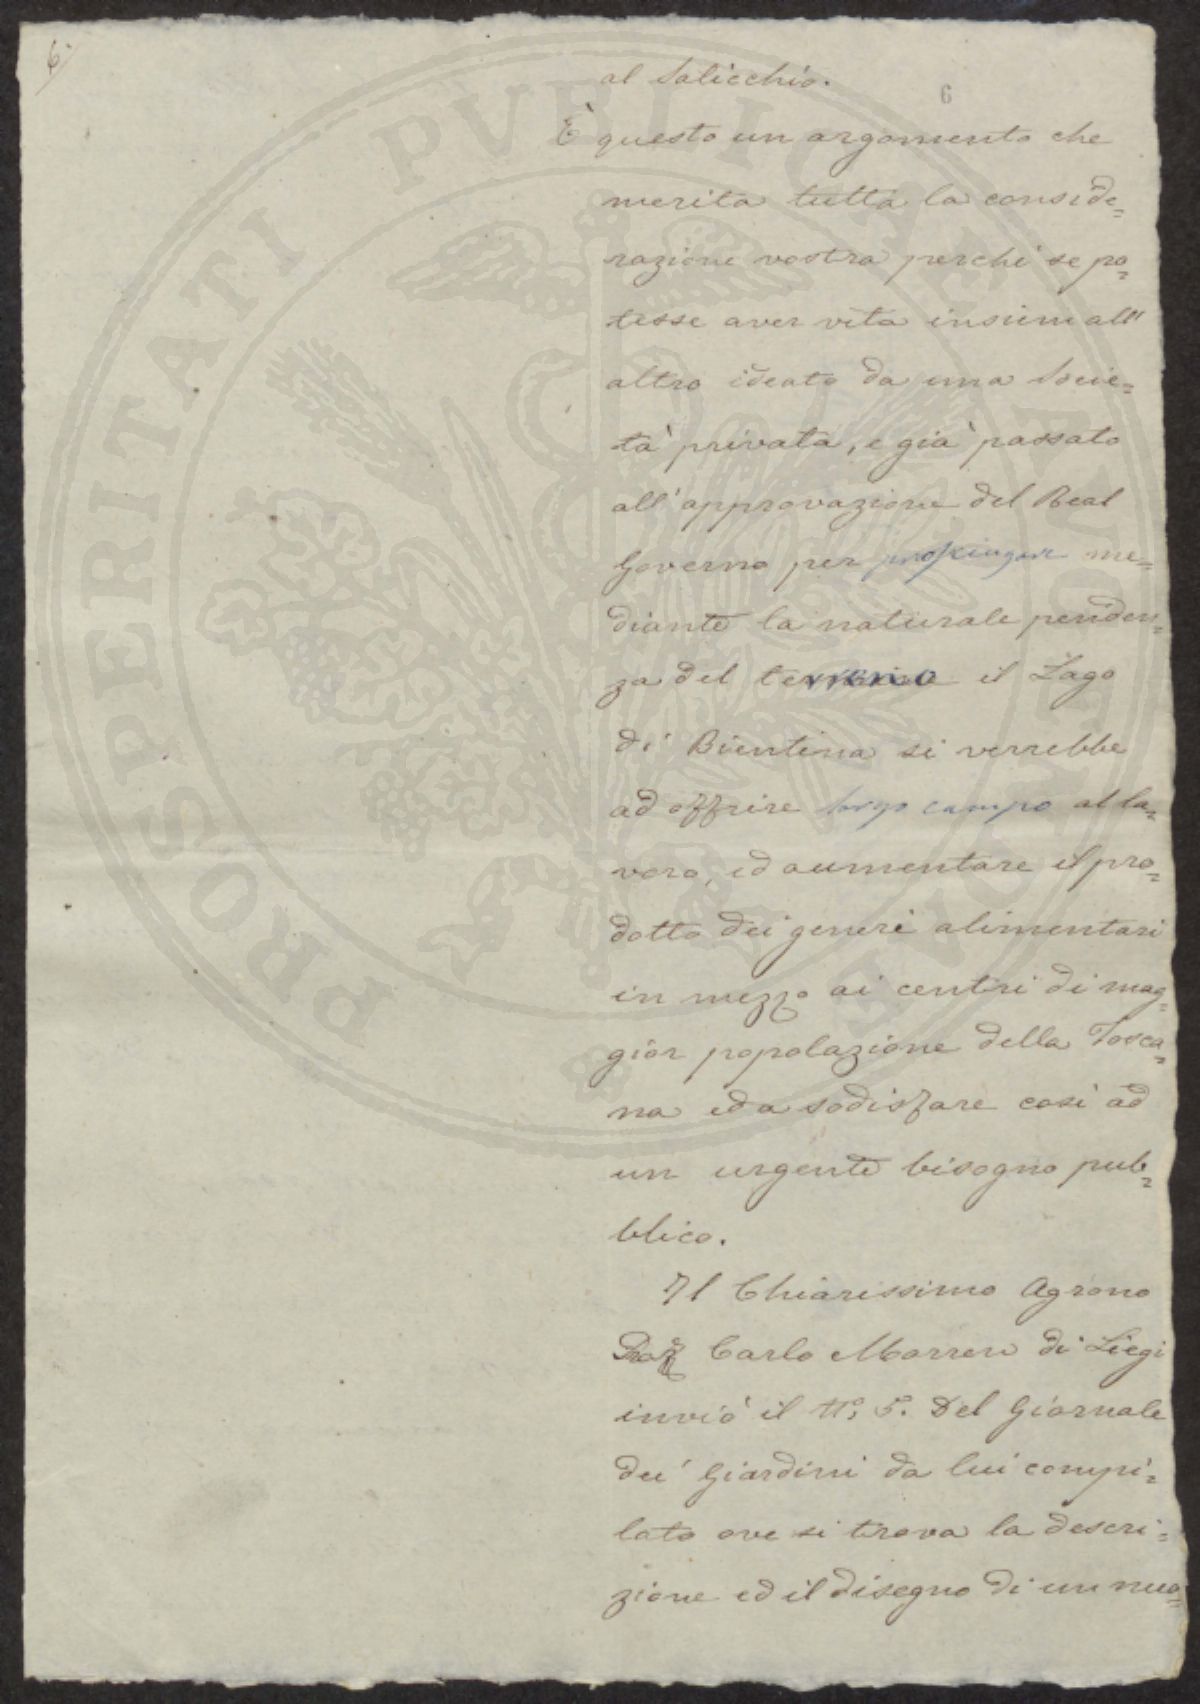 6
al Salicchio.
6
È questo un argomento che
merita tutta la conside=
razione vostra perchè se po=
tesse aver vita insiem all'
altro ideato da una Socie=
tà privata, e già passato
all'approvazione del Real
Governo per prosciugare me=
diante la naturale penden=
za del terreno il Lago
di Bientina si verrebbe
ad offrire largo campo al la=
voro, ed aumentare il pro=
dotto dei generi alimentari
in mezzo ai centri di mag=
gior popolazione della Tosca=
na ed a sodisfare così ad
un urgente bisogno pub=
blico.
Il Chiarissimo Agrono
Carlo Morren di Liegi
inviò il N.º 5. del Giornale
dei Giardini da lui compi=
lato ove si trova la descri=
zione ed il disegno di un nuo=
PROSPERITATI PVBLICAE AVGENDAE